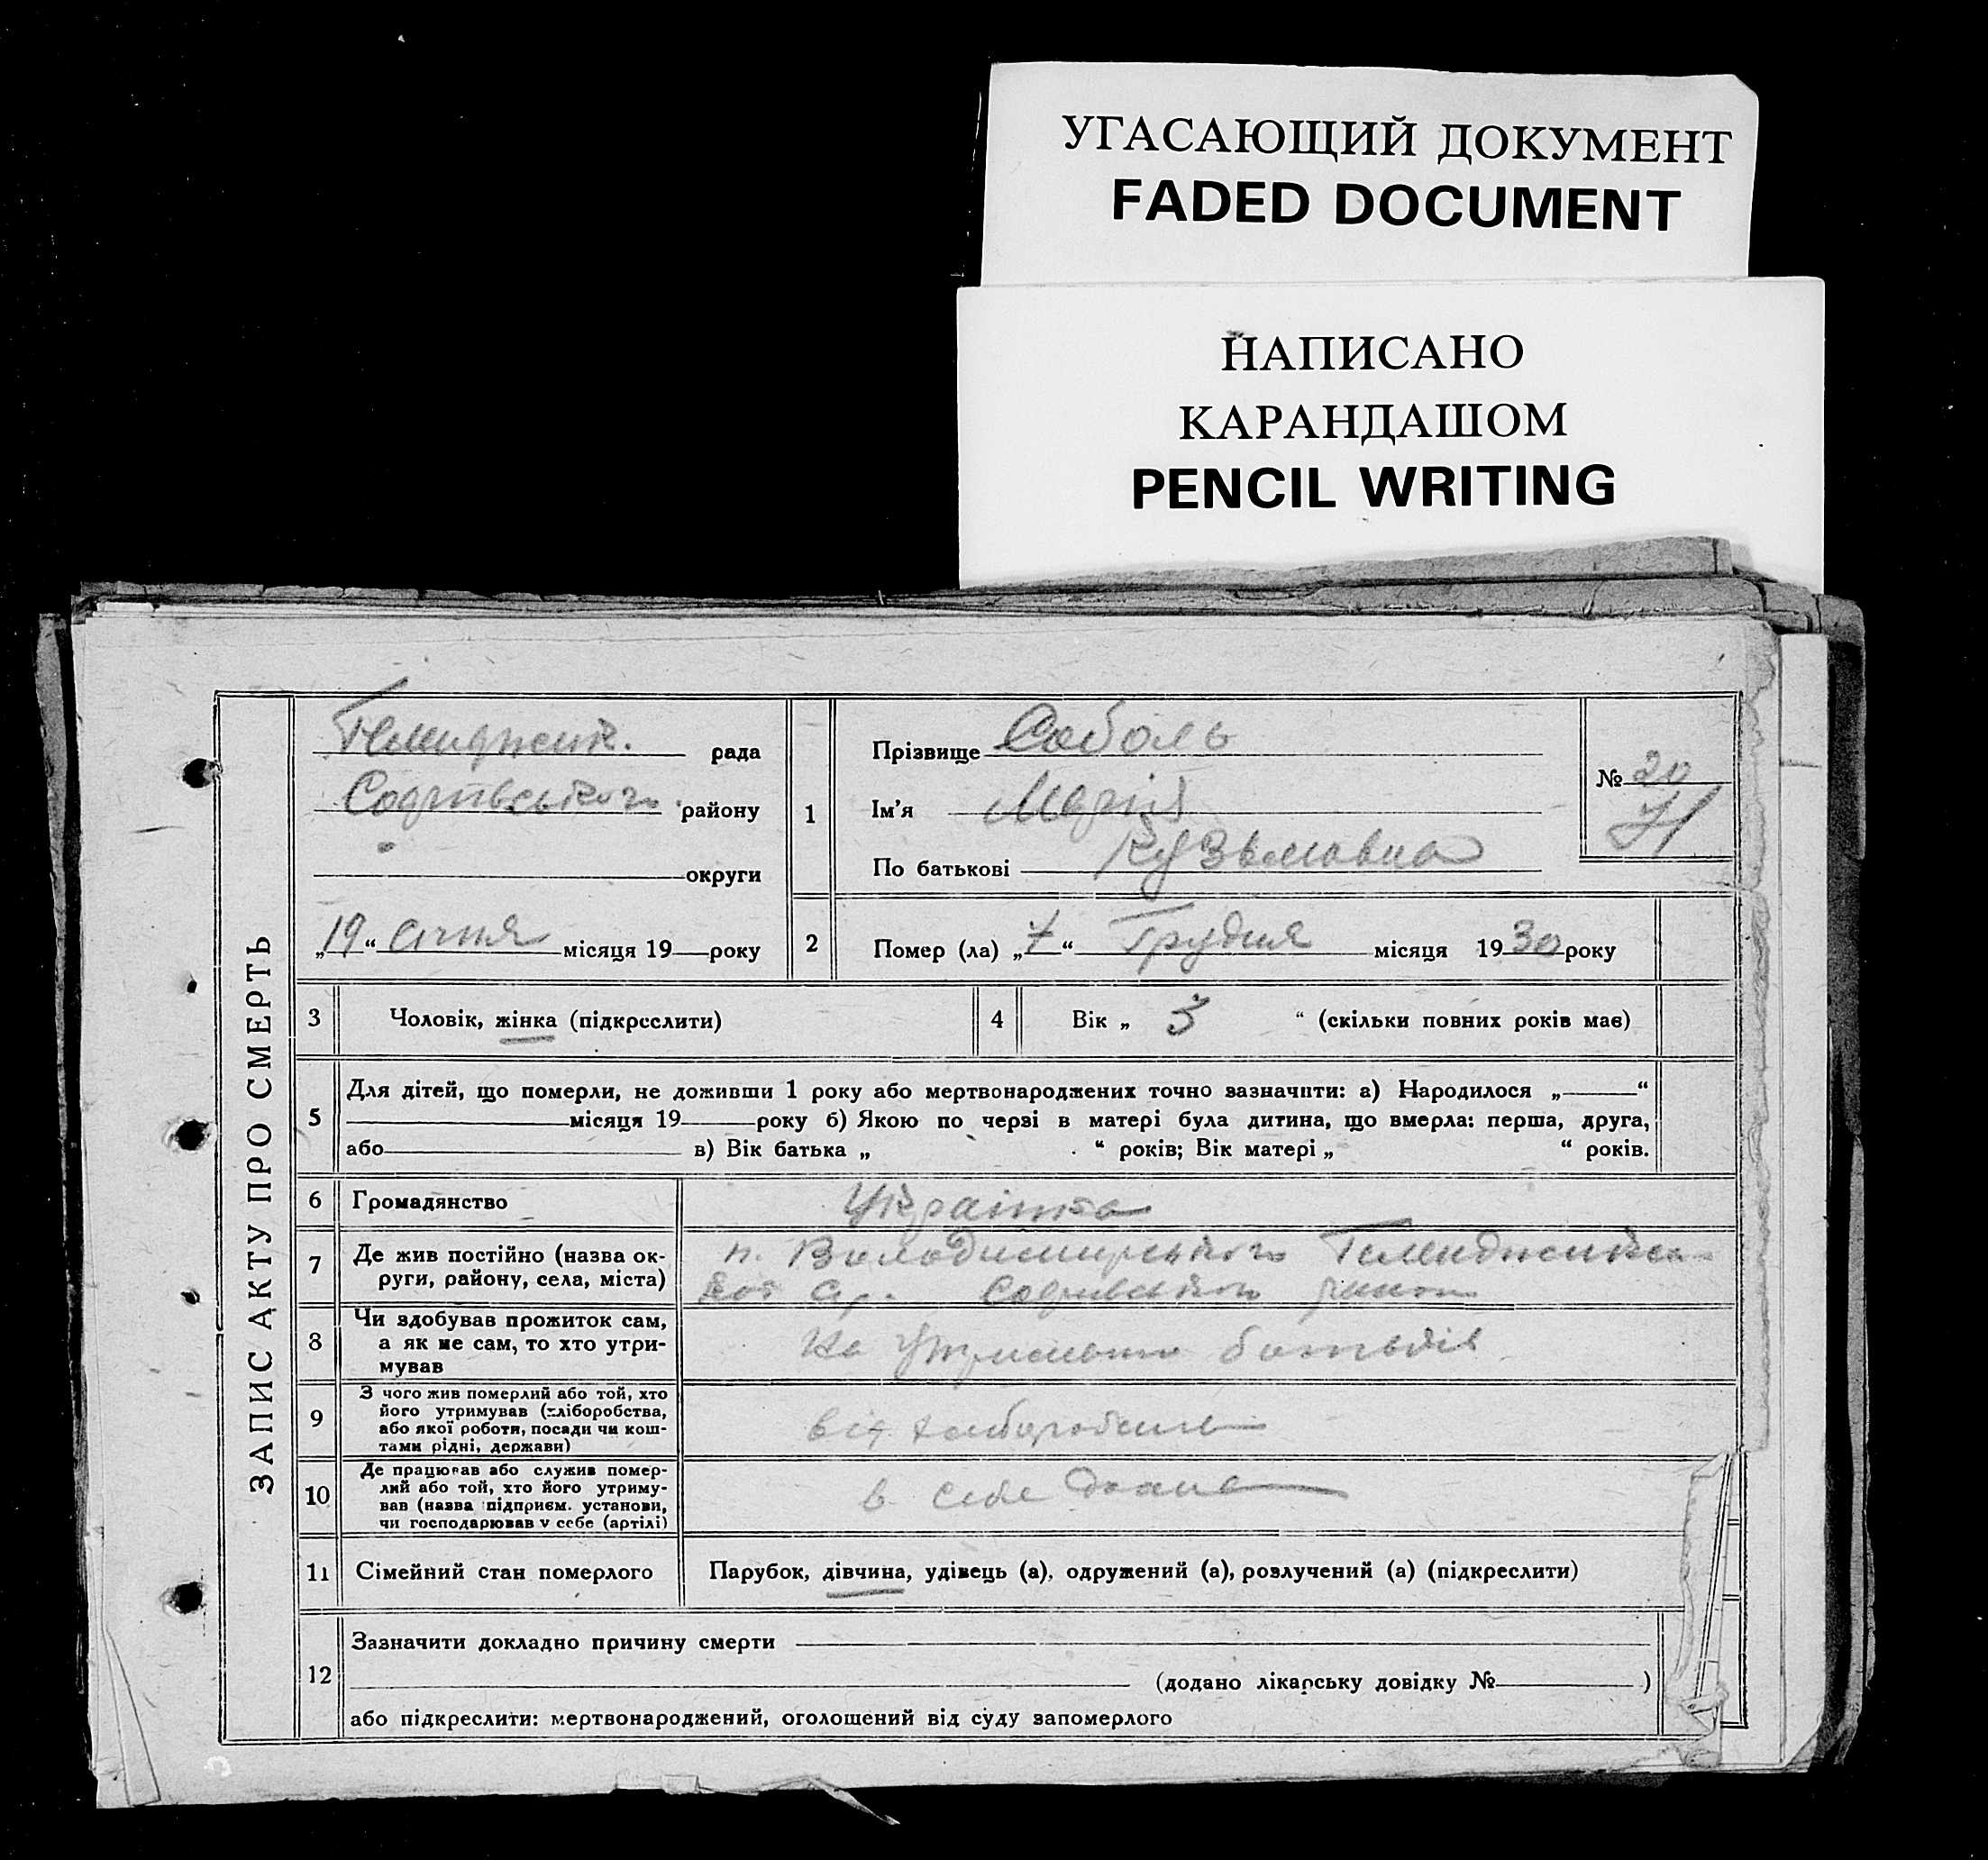 УГАСАЮЩИЙ ДОКУМЕНТ
FADED DOCUMENT
НАПИСАНО
КАРАНДАШОМ
PENCIL WRITING
ЗАПИС АКТУ ПРО СМЕРТЬ
рада
району
округи
„19“ січня місяця 19 року
1
Прізвище Соболь
Ім’я Марія
По батькові Кузьмовна
№ 20
2
Помер (ла) „7“ Грудня місяця 1930 року
3 Чоловік, жінка (підкреслити)
4 Вік „ 3 “ (скільки повних років має)
5 Для дітей, що померли, не доживши 1 року або мертвонароджених точно зазначити: а) Народилося „ “
місяця 19 року б) Якою по черзі в матері була дитина, що вмерла: перша, друга,
або в) Вік батька „ “ років; Вік матері „ “ років.
6 Громадянство Українка
7 Де жив постійно (назва ок-
руги, району, села, міста)
8 Чи здобував прожиток сам,
а як не сам, то хто утри-
мував
На утриманні батьків
9 З чого жив померлий або той, хто
його утримував (хліборобства,
або якої роботи, посади чи кош-
тами рідні, держави)
від
10 Де працював або служив помер-
лий або той, хто його утриму-
вав (назва підприєм. установи,
чи господарював у себе (артілі)
в себе дома
11 Сімейний стан померлого Парубок, дівчина, удівець (а), одружений (а), розлучений (а) (підкреслити)
12 Зазначити докладно причину смерти
(додано лікарську довідку № )
або підкреслити: мертвонароджений, оголошений від суду запомерлого